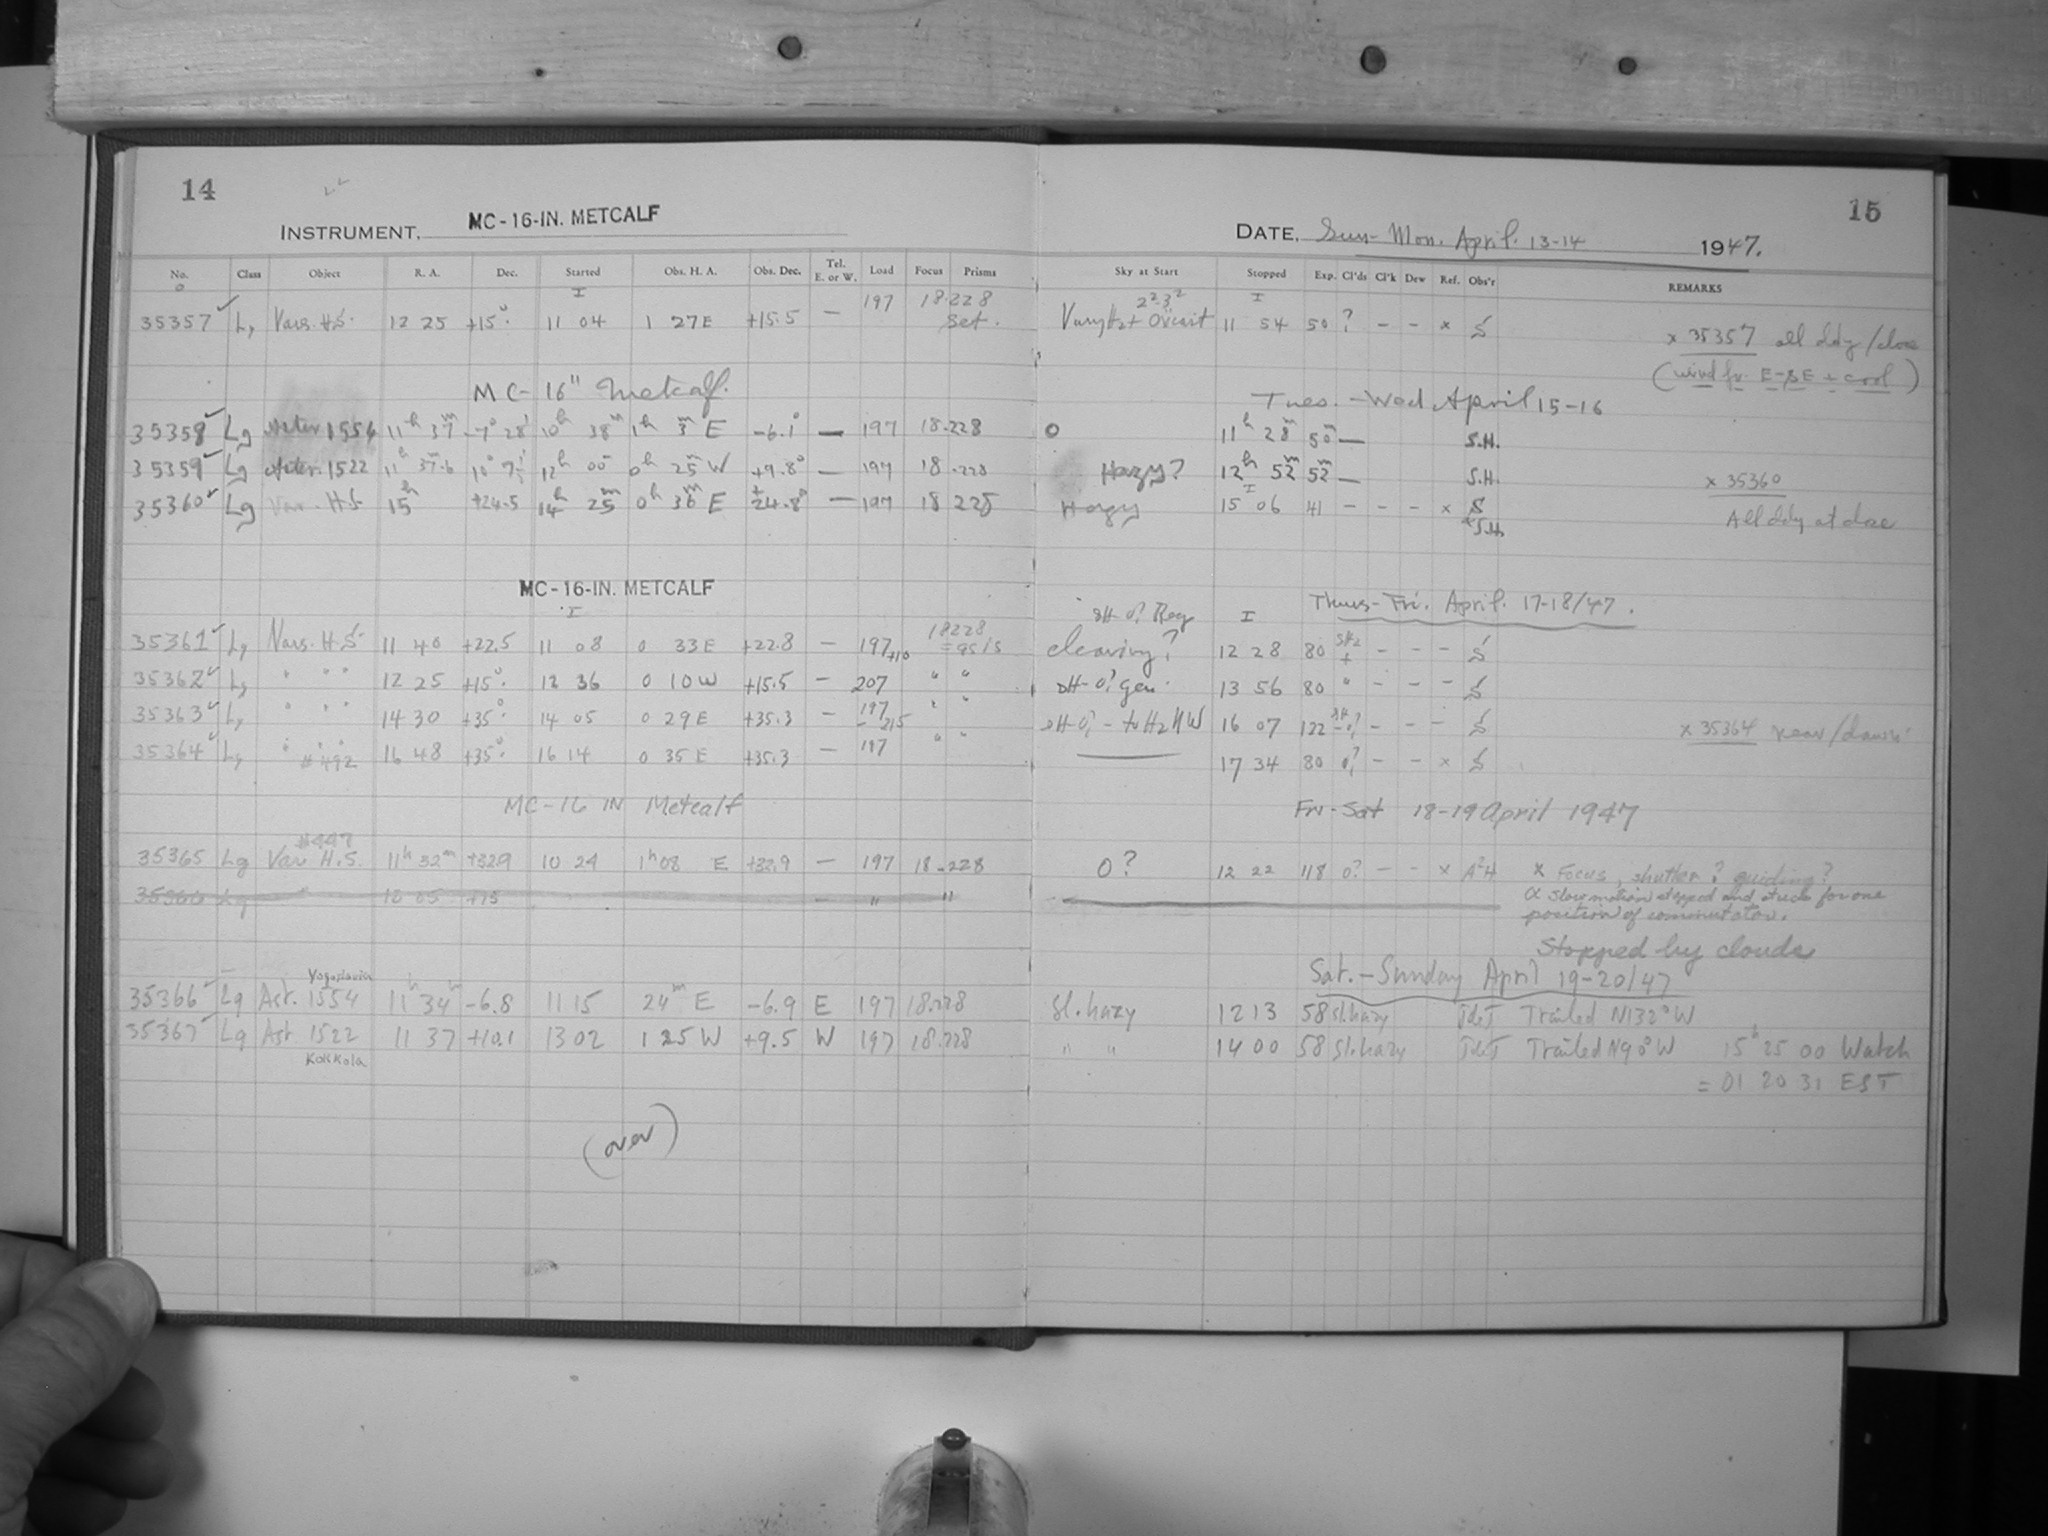 14
INSTRUMENT, MC-16-IN. METCALF
No. Class Object R. A. Dec. Started Obs. H. A. Obs. Dec. Tel. E. or W. Load Focus Prisms
35357 Lg Vars. H.S. 12 25 +15°. 11 04 1 27 E +15.5 — 197 18.228 Set.
MC-16" Metcalf.
35358 Lg 1554 11h 37m -7° 28' 10h 38m 1h 3m E -6.1° — 197 18.228
35359 Lg Aster. 1522 11h 37.6m 12h 00 0h 25m W +9.8° — 197 18.228
35360 Lg Var. H.S 15h +24.5 14 25m 0h 36m E +24.8° — 197 18 228
MC-16-IN. METCALF
35361 Lg Vars. H.S. 11 40 +22.5 11 08 0 33 E +22.8 — 197 +10 18228
35362 Lg " " " 12 25 +15°. 12 36 0 10 W +15.5 — 207 " "
35363 Lg " " " 14 30 +35°. 14 05 0 29 E +35.3 — 197 " "
35364 Lg " " " #492 16 48 +35°. 16 14 0 35 E +35.3 — 197 " "
MC-16 IN Metcalf
35365 Lg Var. H.S. #447 11h 32m +32.9 10 24 1h 08 E +32.9 — 197 18.228
35366 Lg " +15 — " "
35366 Lg Ast. 1554 Yogoslavia 11h 34 -6.8 11 15 24m E -6.9 E 197 18.228
35367 Lg Ast 1522 Kokkola 11 37 +10.1 13 02 1 25 W +9.5 W 197 18.228
(over)
15
DATE, Sun-Mon. April. 13-14 1947.
Sky at Start Stopped Exp. Cl'ds Cl'k Dew Ref. Obs'r REMARKS
11 54 50 ? — — x S x 35357 all ddy/close
(wind fr. E-SE + cool)
Tues. - Wed April 15-16
0 11h 28m 50m — S.H.
Hazy? 12h 52m 52m — S.H. x 35360
Hazy 15 06 41 — — — x S + S.H. All ddy at close
Thurs-Fri. April. 17-18/47.
clearing? 12 28 80 — — — S
12 36
13 56 80 " — — — S
16 07 122 — — — S x 35364 near/dawn
17 34 80 0? — — x S
Fri-Sat 18-19 April 1947
0? 12 22 118 0? — — x x Focus, shutter? guiding?
α Slow motion stopped and stuck for one
position of commutator.
Stopped by clouds
Sat.-Sunday April 19-20/47
Sl. hazy 12 13 58 sl. hazy Trailed N132°W
" " 14 00 58 Sl. hazy Trailed N90°W 15h 25 00 Watch
= 01 20 31 EST